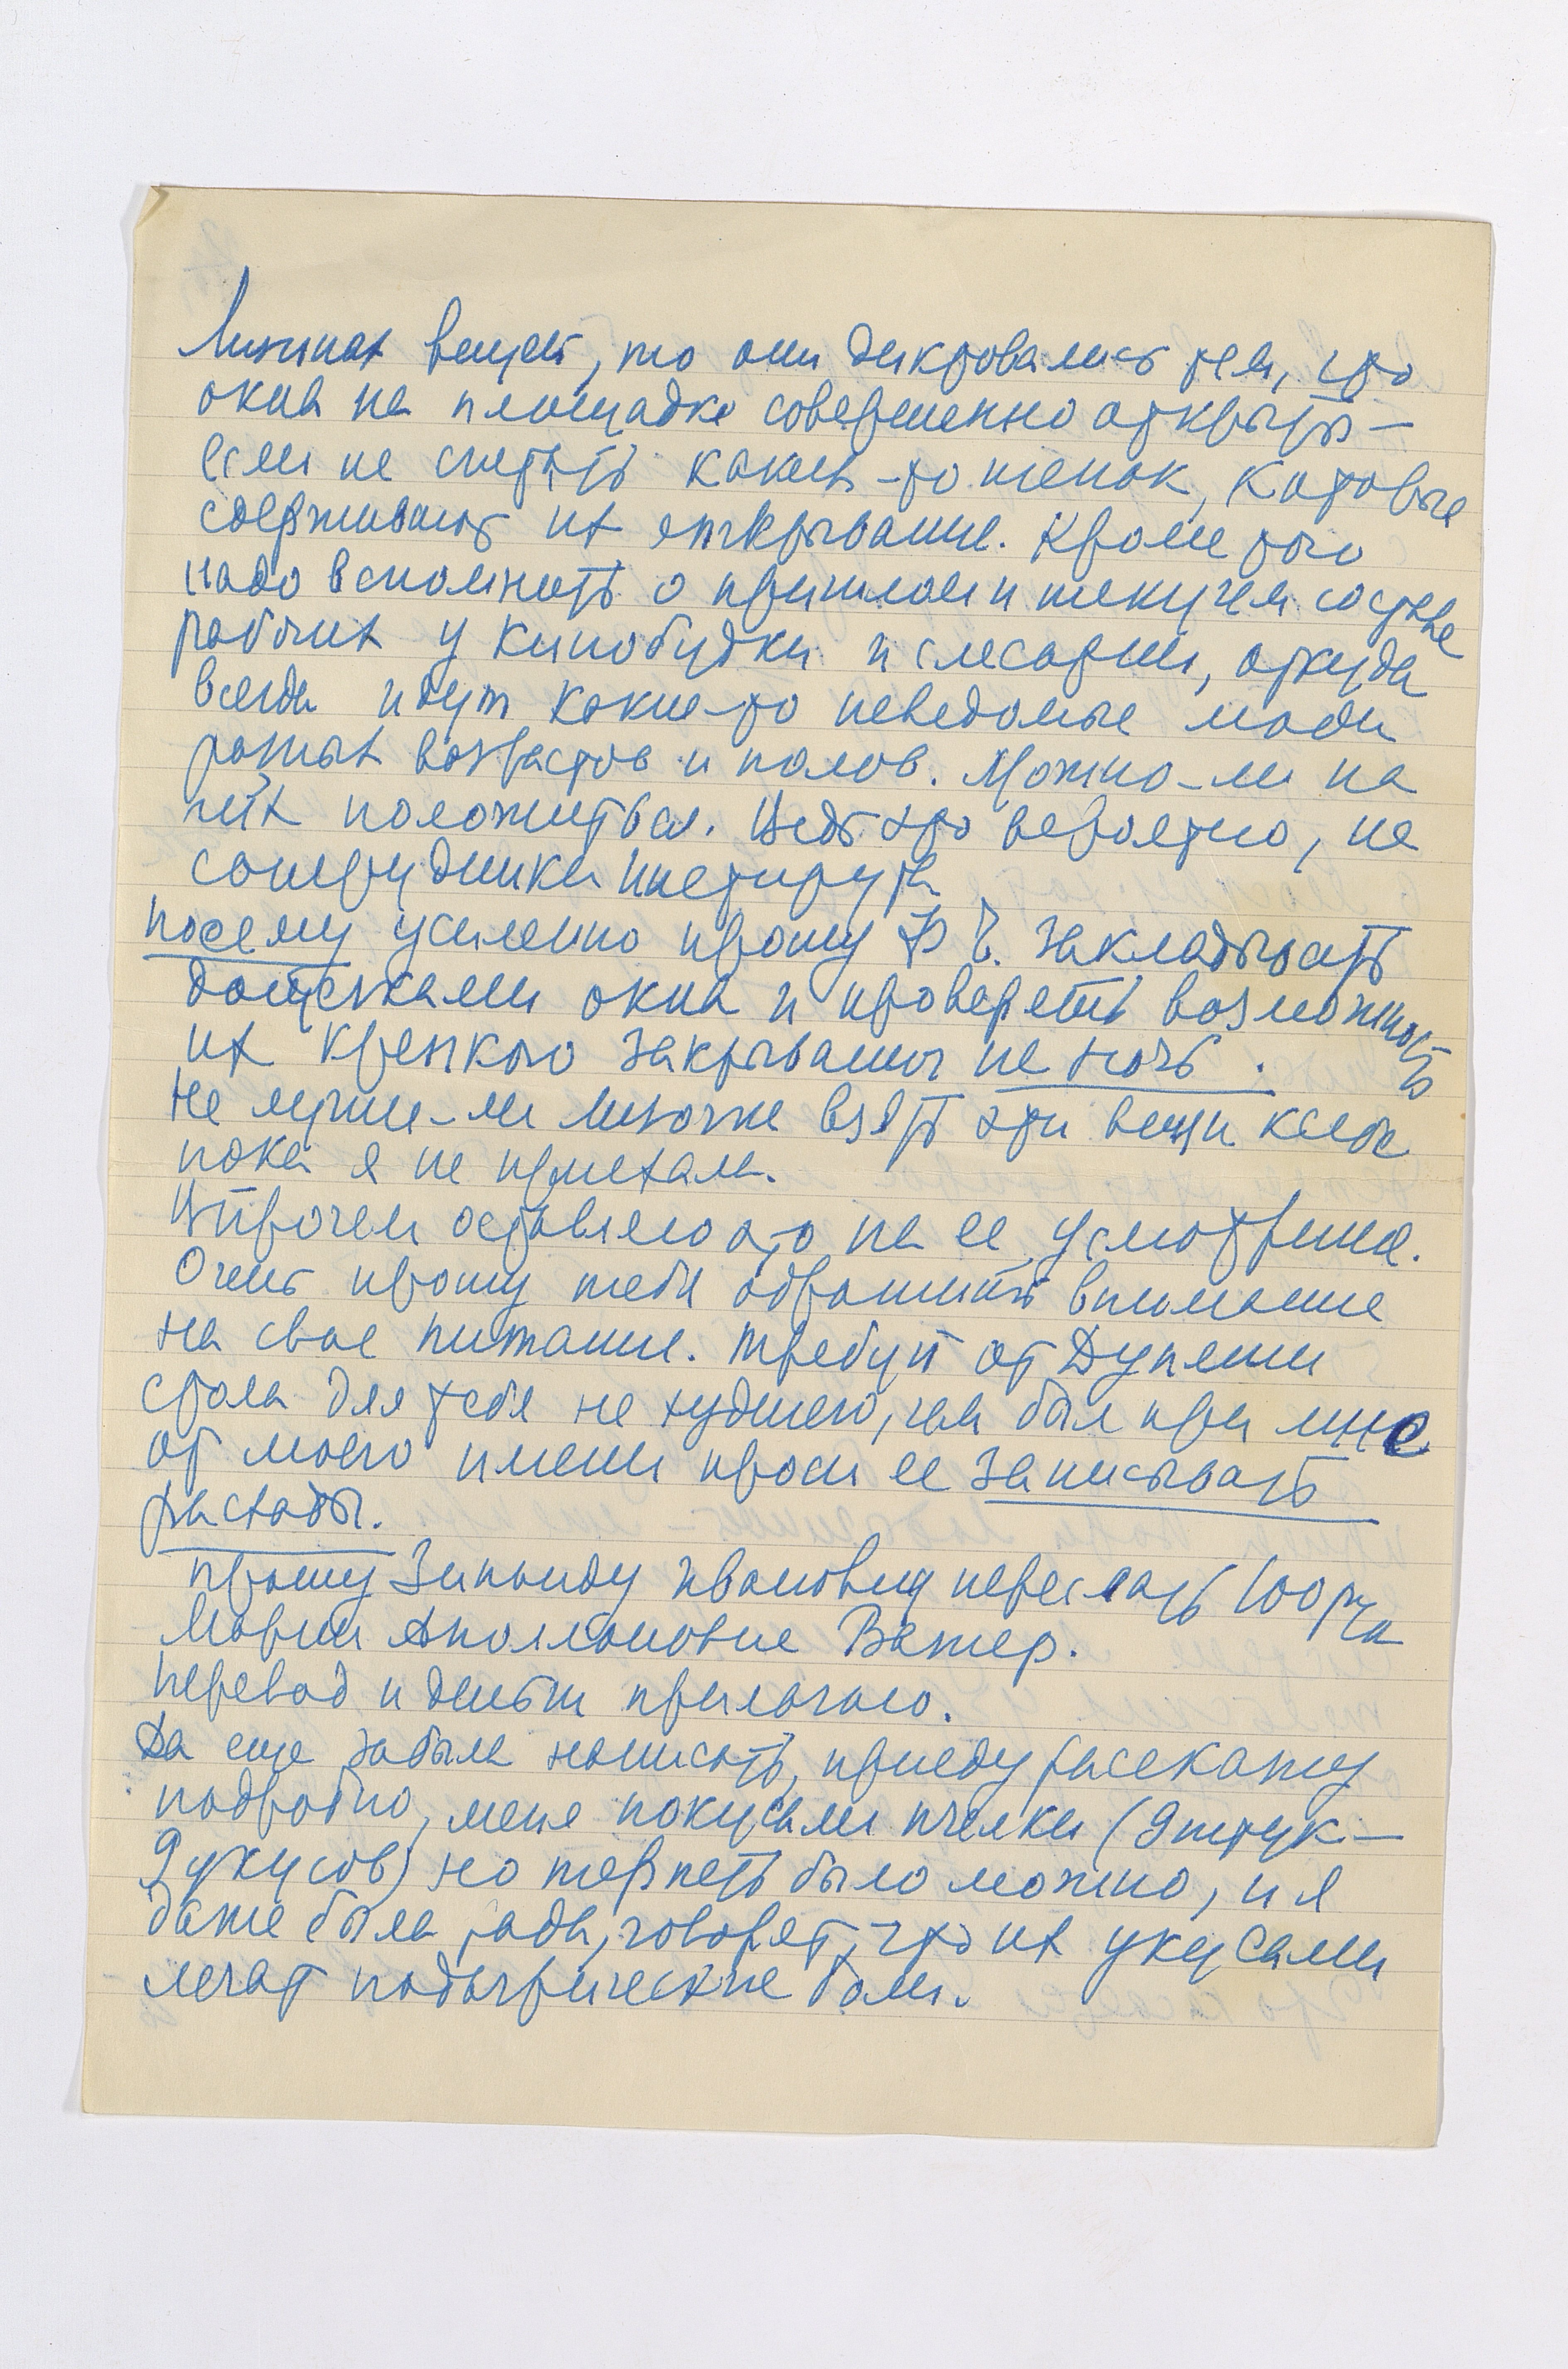 Лизиных вещей, то они диктовались тем, что
окна на площадке совершенно открыты —
если не считать каких-то щепок, которые
сдерживают их открывание. Кроме того
надо вспомнить о пришлом и текучем составе
рабочих у кинобудки и слесарни, откуда
всегда идут какие-то неведомые люди
разных возрастов и полов. Можно-ли на
них положиться. Ведь это вероятно, не
сотрудники Института
посему усиленно прошу Ф. Закладывать
окна и проверить возможность
их крепкого закрывания на ночь.
Не лучше-ли Лизочке взять эти вещи к себе
пока я не приехала.
Впрочем оставляю это на ее усмотрение.
Очень прошу тебя обратить внимание
на свое питание. Требуй от Дуняши
стола для тебя не худшего, чем был при мне
от моего имени проси ее записывать
расходы.
прошу Зинаиду Ивановну переслать 100 р
Марии Аполлоновне Вагнер.
Перевод и деньги прилагаю.
Да еще забыла написать, приеду расскажу
подробно, меня покусали пчелки (9 штук —
9 укусов) но терпеть было можно, и я
даже была рада, говорят, что их укусами
лечат подагрические боли.